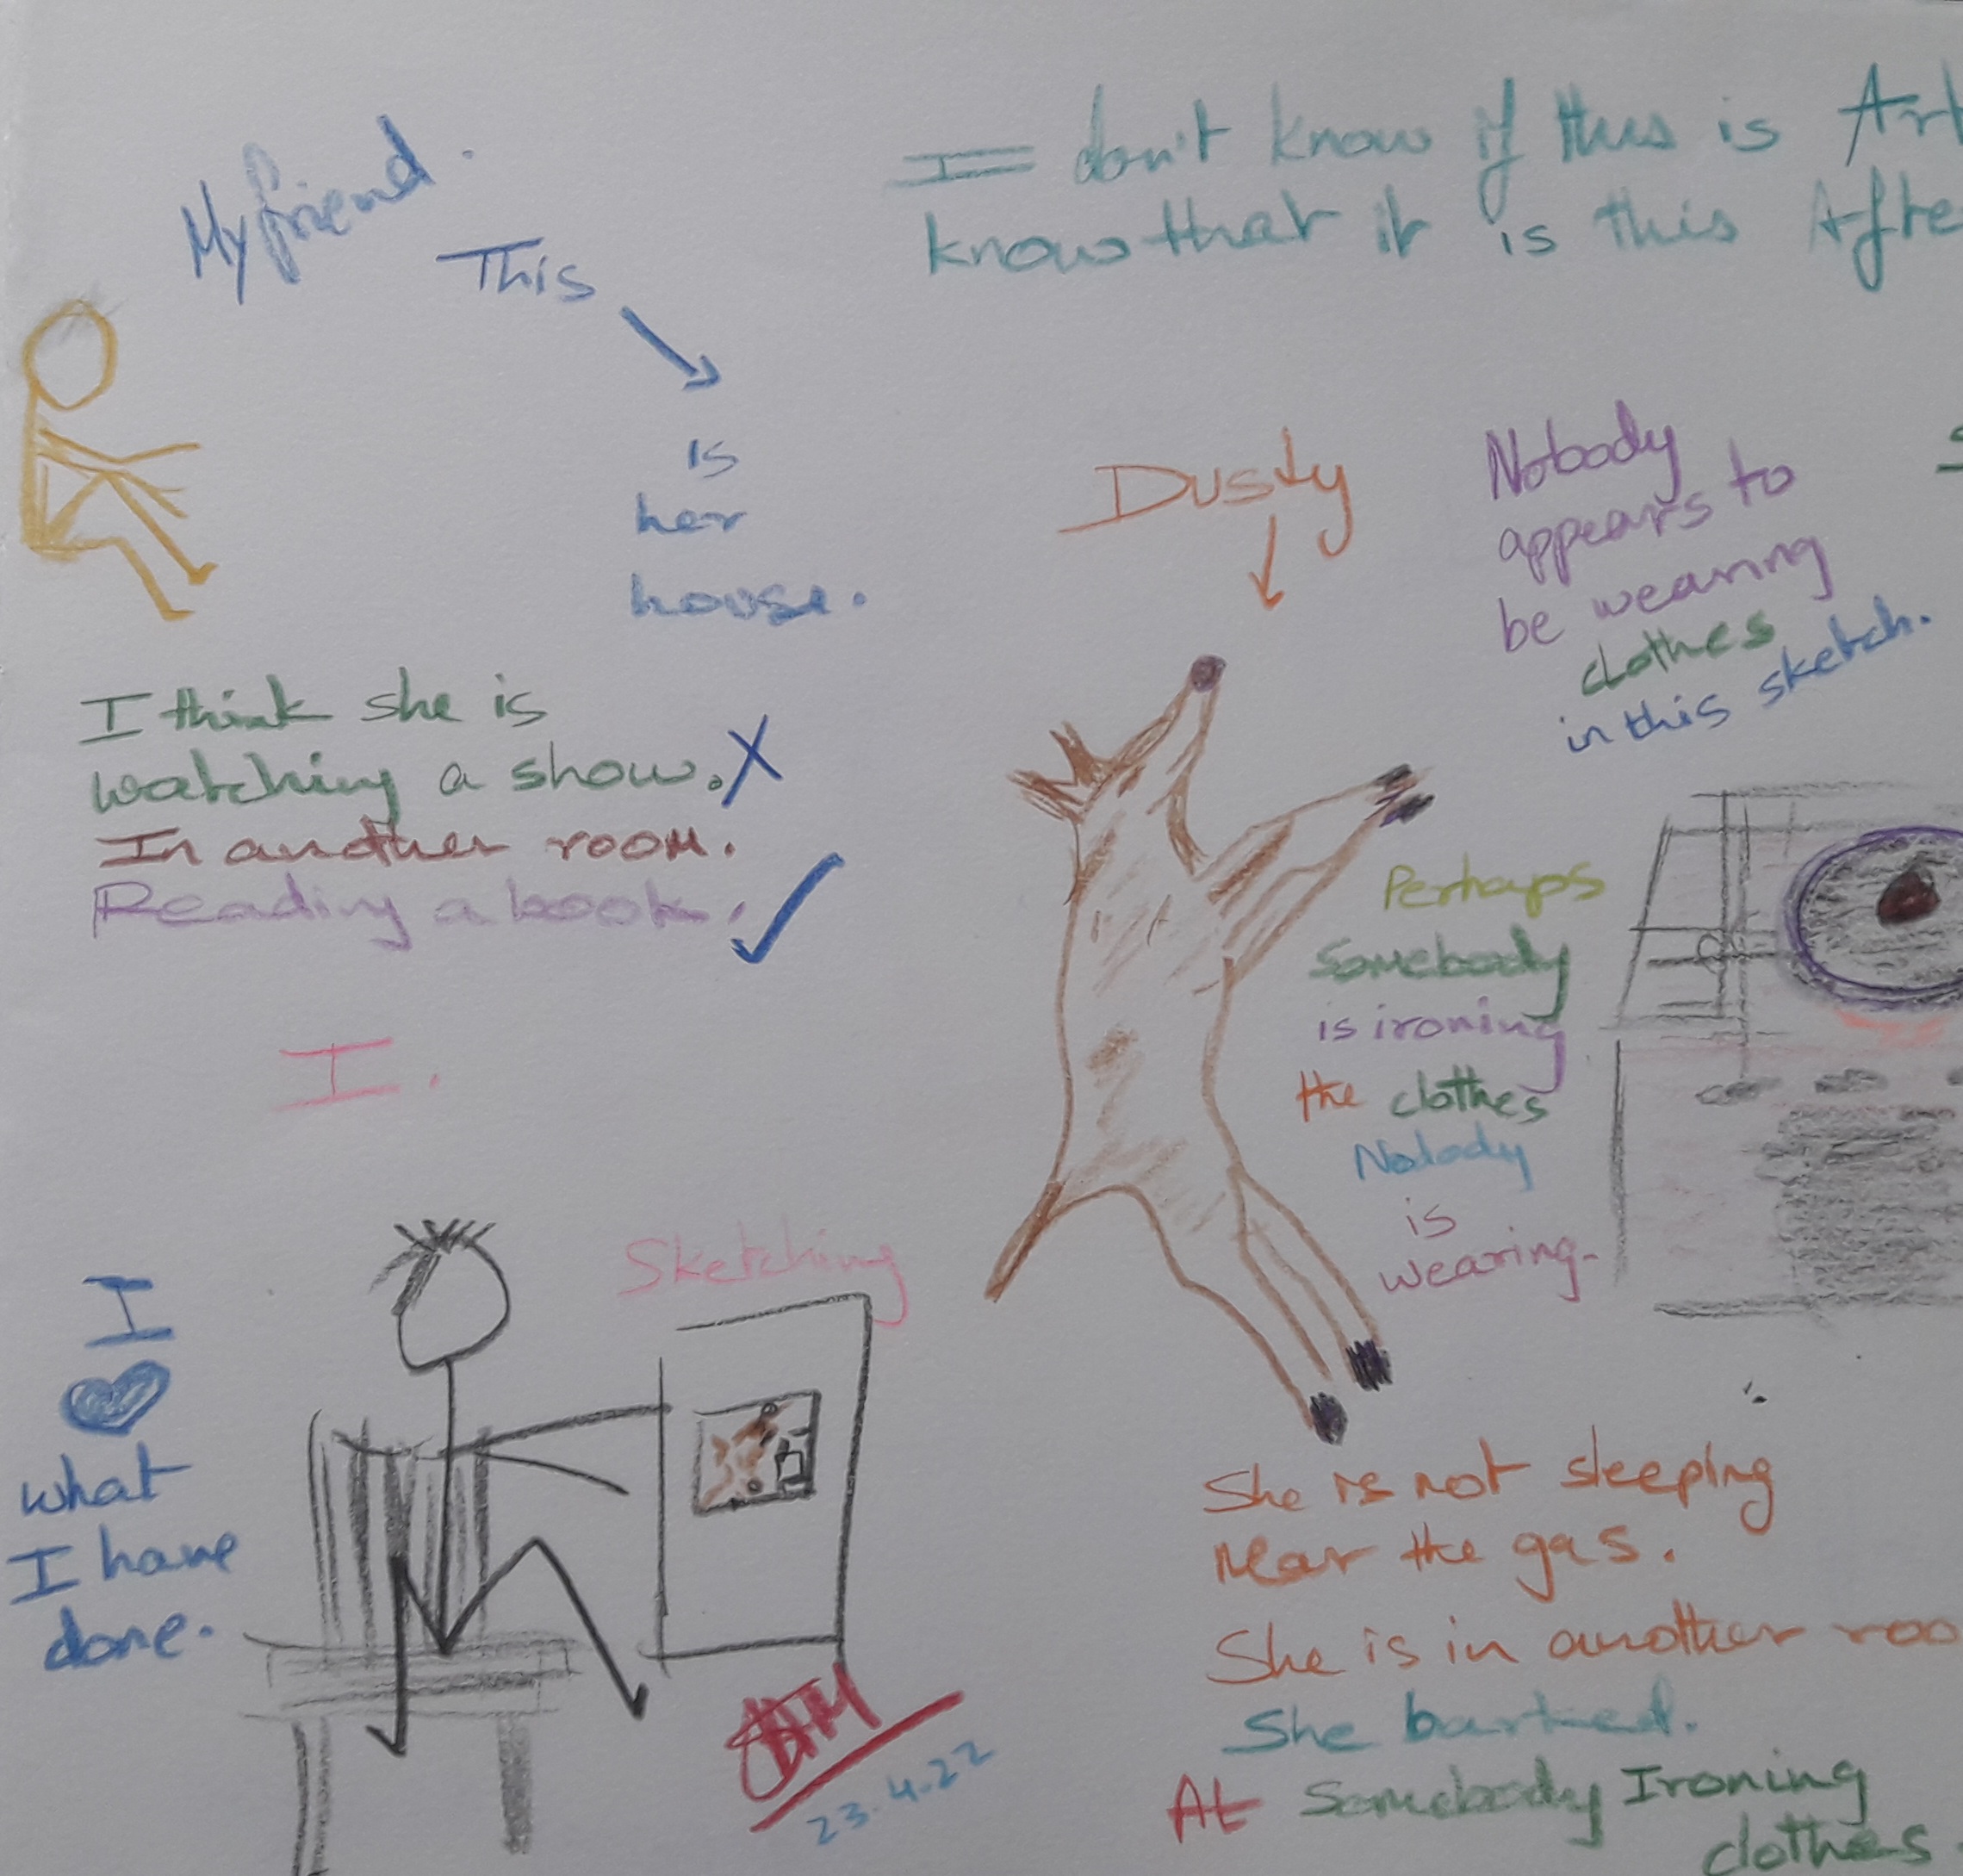 My friend.
This
is
her
house.
I don't know if this is Art
know that it is this Afte
Dusty
Nobody
appears to
be wearing
clothes
in this sketch.
I think she is
watching a show. X
In another room.
Reading a book. ✓
Perhaps
Somebody
is ironing
the clothes
Nobody
is
wearing.
I.
Sketching
I
♥
what
I have
done.
23.4.22
She is not sleeping
near the gas.
She is in another roo
She barked.
At Somebody Ironing
clothes.